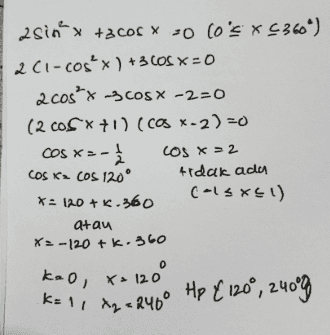 2 sin² x + 3 cos x = 0 (0° ≤ x ≤ 360°)
2 (1 - cos² x) + 3 cos x = 0
2 cos² x - 3 cos x - 2 = 0
(2 cos x + 1) (cos x - 2) = 0
cos x = - 1/2 cos x = 2
cos x = cos 120° tidak ada
x = 120 + k . 360 (-1 ≤ x ≤ 1)
atau
x = -120 + k . 360
k = 0, x = 120°
k = 1, x₂ = 240° Hp { 120°, 240° }